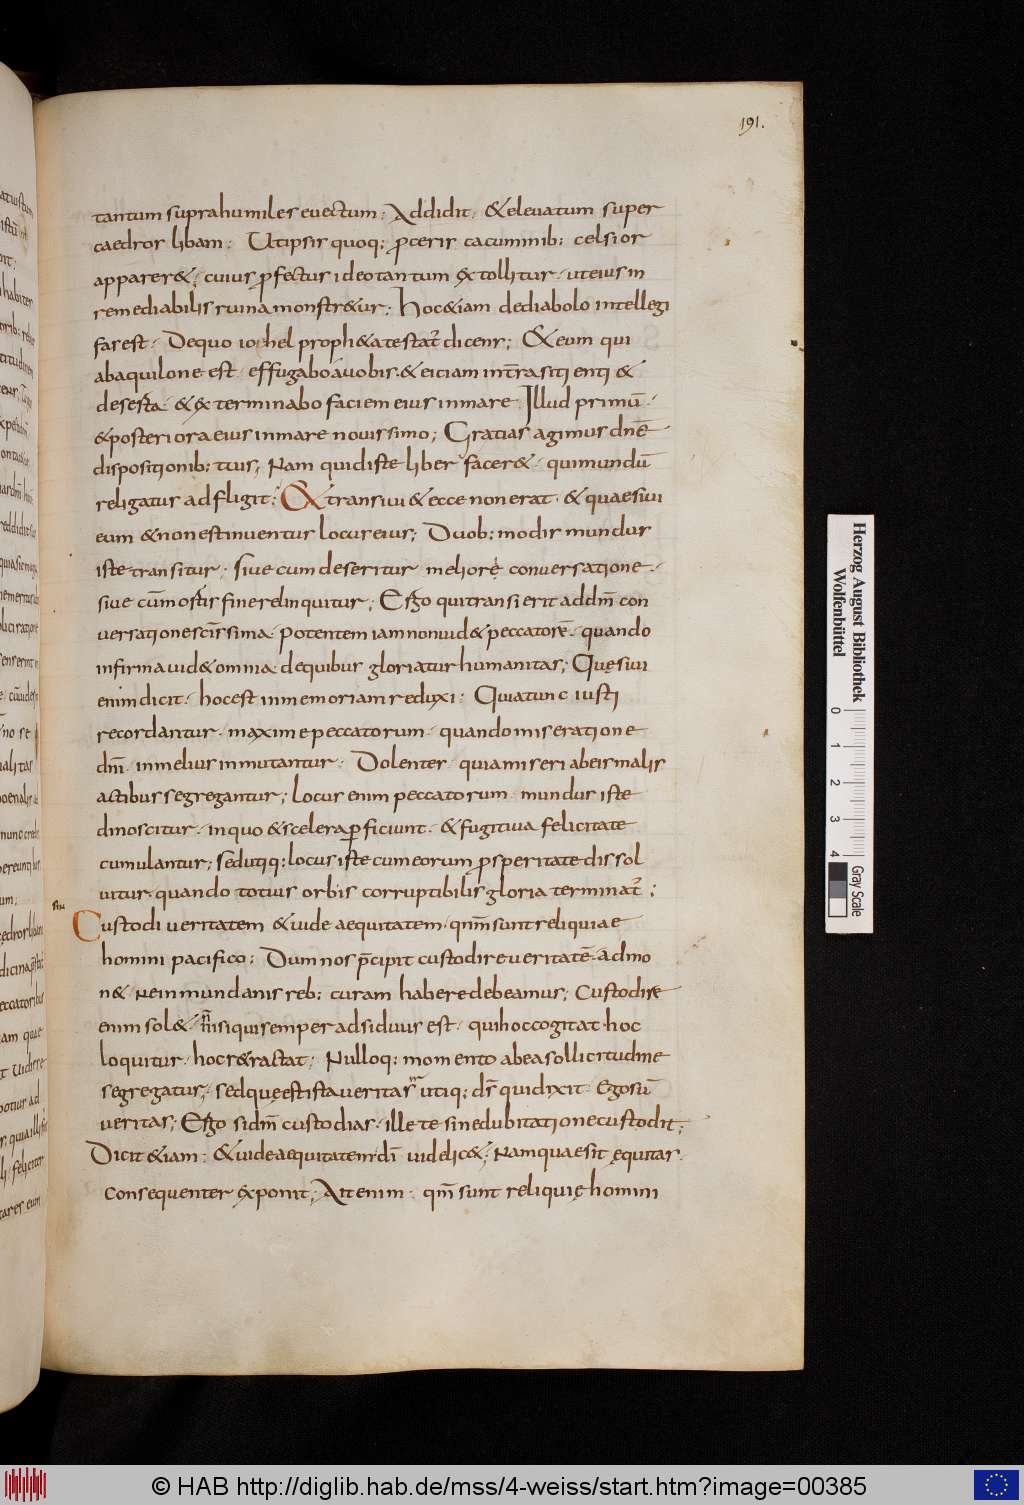 191.
tantum supra humiles euectum; Addidit· & eleuatum super
caedros libani; Ut ipsis quoq; ꝓceris cacuminib; celsior
apparer&; cuius ꝓfectus ideo tantum extollitur· ut eius in
remediabilis ruina monstr&ur; Hoc &iam de diabolo intellegi
fas est· De quo iohel proph&a testat̄ dicens; & eum qui
ab aquilone est· effugabo á uobis· & eiciam in t̄ra siti enti &
deserta· & exterminabo faciem eius in mare Illud primū·
& posteriora eius in mare nouissimo; Gratias agimus dn̄e
dispositionib; tuis; Nam quid iste liber facer&· qui mundū
religatus adfligit; & transiui & ecce non erat· & quaesiui
eum & non est inuentus locus eius; Duob; modis mundus
iste transitur; siue cum deseritur meliorę conuersatione·
siue cū nostris fine relinquitur; Ergo qui transierit ad dm̄ con
uersatione scīssima· potentem iam non uid& peccatorē· quando
infirma uid& omnia de quibus gloriatur humanitas; Quęsiui
enim dicit· hoc est in memoriam reduxi; Quia tunc iusti
recordantur· maxime peccatorum· quando miseratione
dn̄i· in melius inmutantur· Dolenter quia miseri ab eis malis
actibus segregantur; locus enim peccatorum· mundus iste
dinoscitur· in quo & scelera ꝑficiunt· & fugitiua felicitate
cumulantur; sed utiq; locus iste cum eorum ꝓsperitate dissol
uitur· quando totius orbis corruptibilis gloria terminat̄;
Custodi ueritatem & uide aequitatem· qnm̄ sunt reliquiae
homini pacifico; Dum nos p̄cipit custodire ueritatē· admo
n& ne in mundanis reb; curam habere debeamus; Custodire
enim sol& n̄ nisi qui semper adsiduus est· qui hoc cogitat· hoc
loquitur· hoc r&ractat; Nulloq; momento ab ea sollicitudine
segregatur; sed quę est ista ueritas utiq; dn̄s qui dixit· Ego sū
ueritas; Ergo si dn̄m custodias· ille te sine dubitatione custodit;
Dicit &iam· & uide aequitatem· dn̄i uidelic&; Nam quae sit ęquitas·
consequenter exponit; Ait enim· qnm̄ sunt reliquię homini
Herzog August Bibliothek
Wolfenbüttel
0 1 2 3 4
Gray Scale
© HAB http://diglib.hab.de/mss/4-weiss/start.htm?image=00385